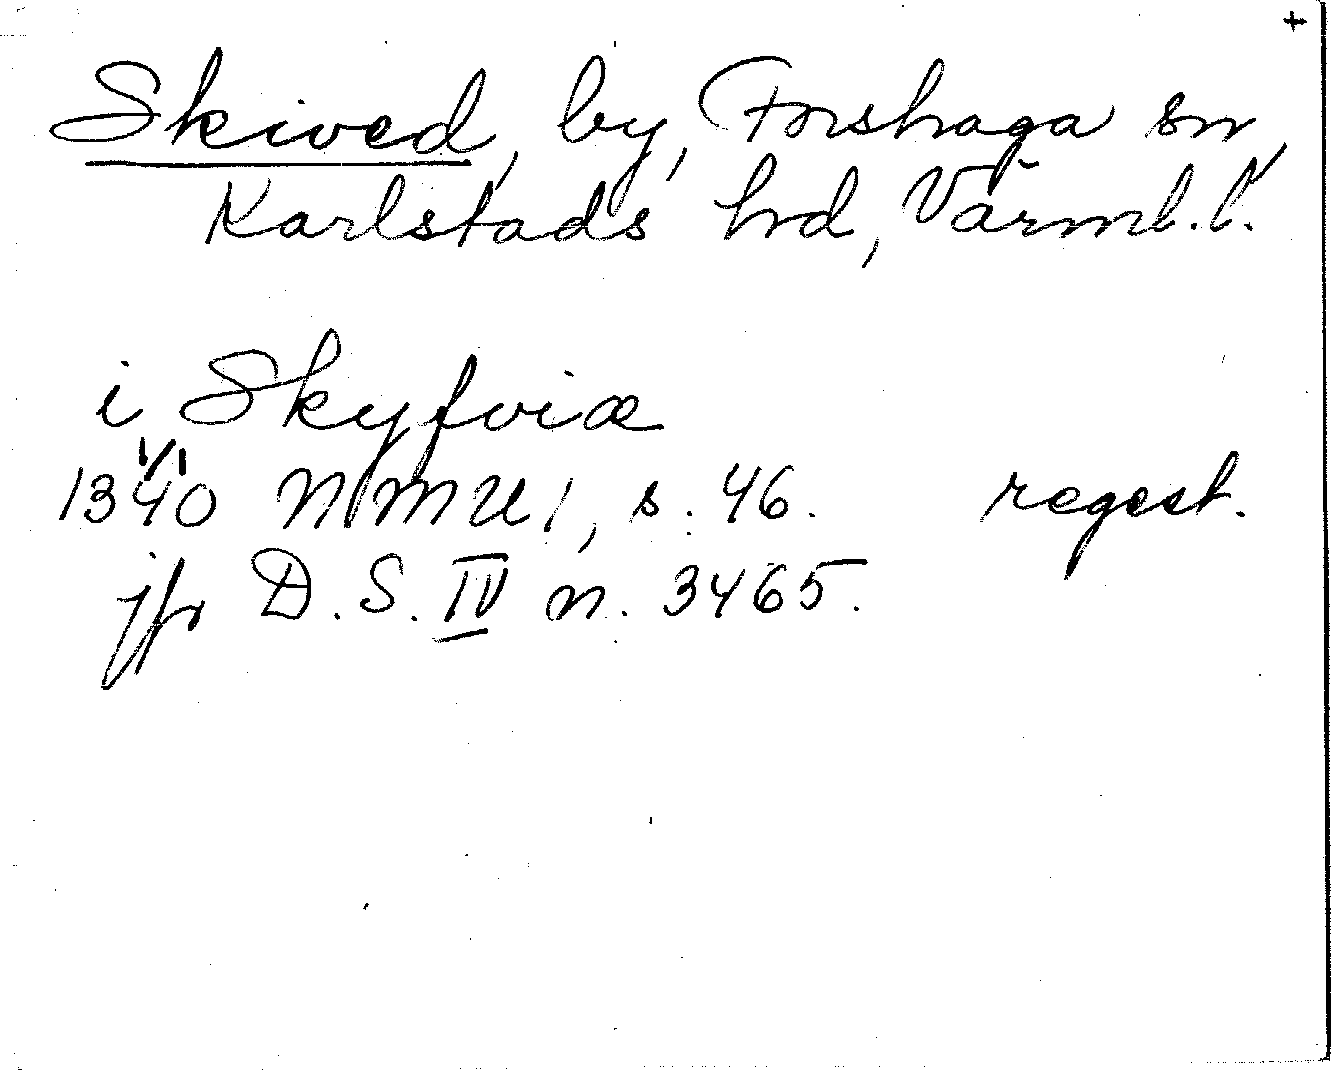 +
Skived, by, Forshaga sn,
Karlstads hd, Värml. l.
i Skyfviæ
1/1
1340 NMU 1, s. 46. regest.
jfr D. S. IV n. 3465.